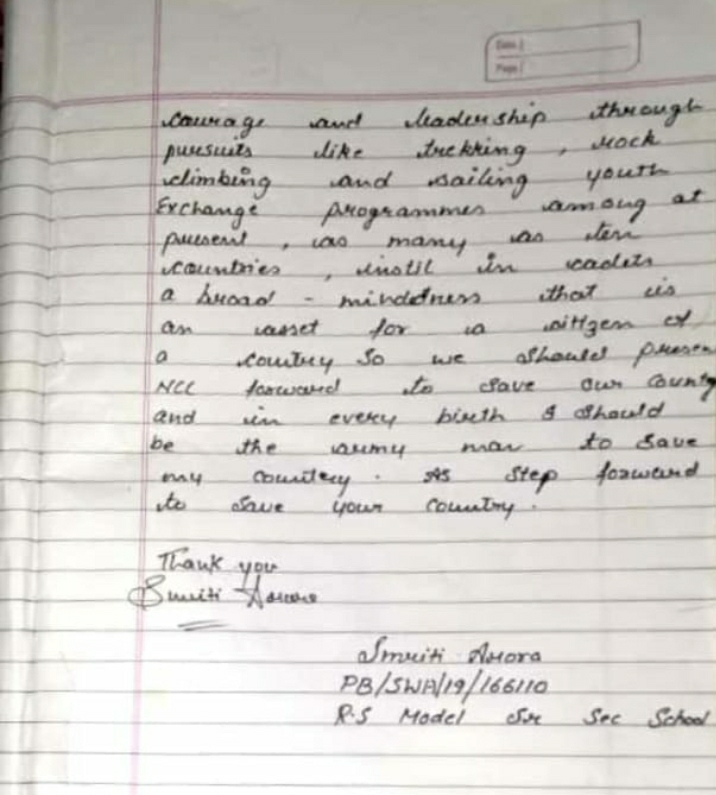 Date
Page
courage and leadership through
pursuits like trekking, rock
climbing and sailing youth
Exchange programmes among at
present, as many as ten
countries, instil in cadets
a broad - minddness that is
an asset for a sittzen of
a country so we should presen
NCC forward to save our county
and in every birth I should
be the army man to save
my country. As step forward
to save your country.
Thank you
Smriti Arora
Smriti Arora
PB/SWA/19/166110
R.S Model Sr Sec School